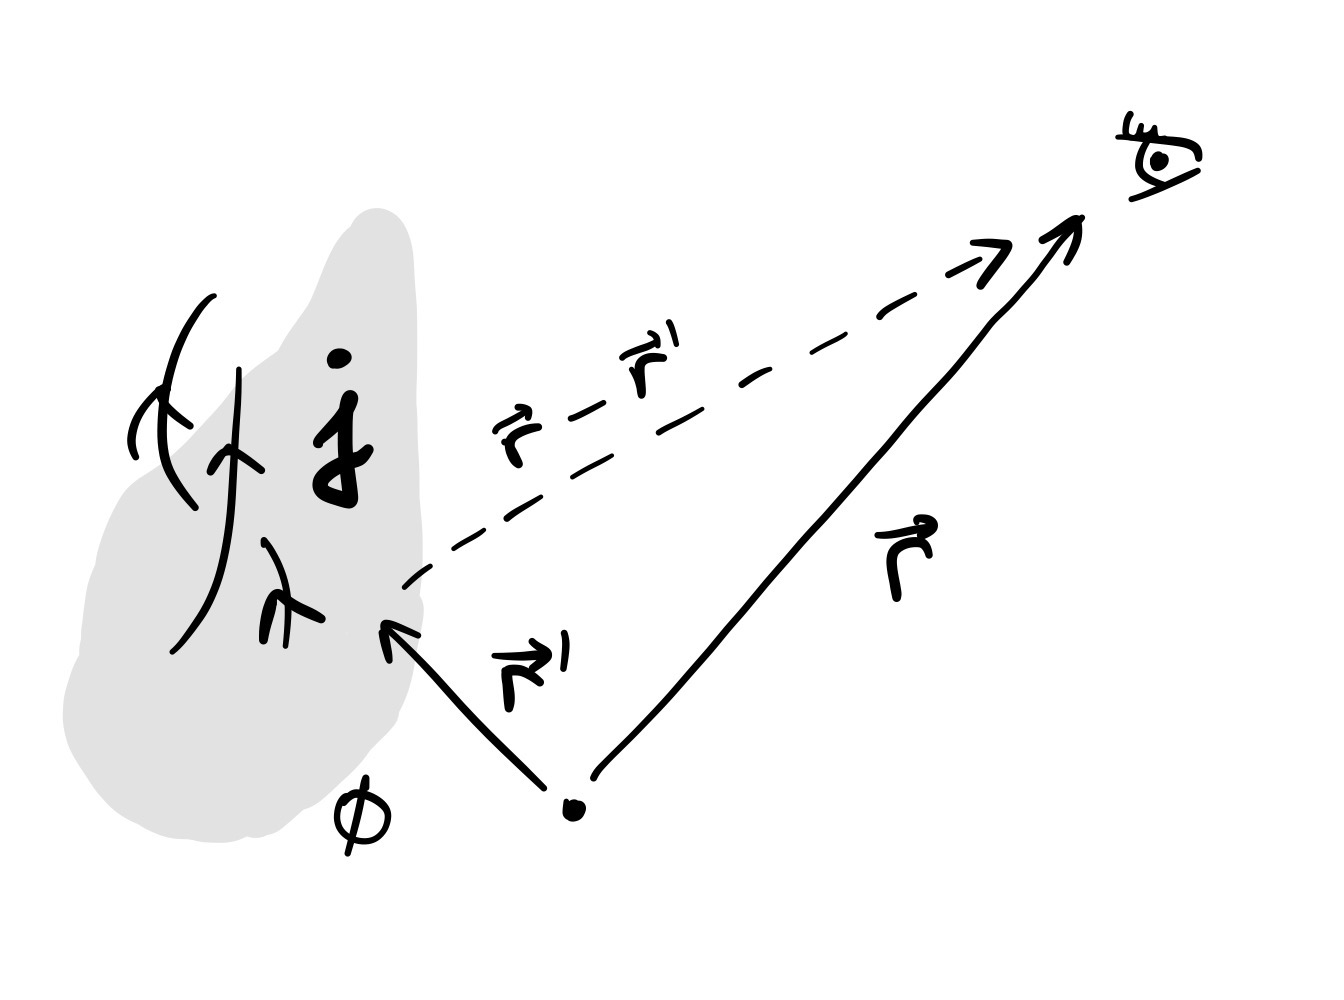 r⃗ - r⃗'
j
r⃗
r⃗'
ϕ